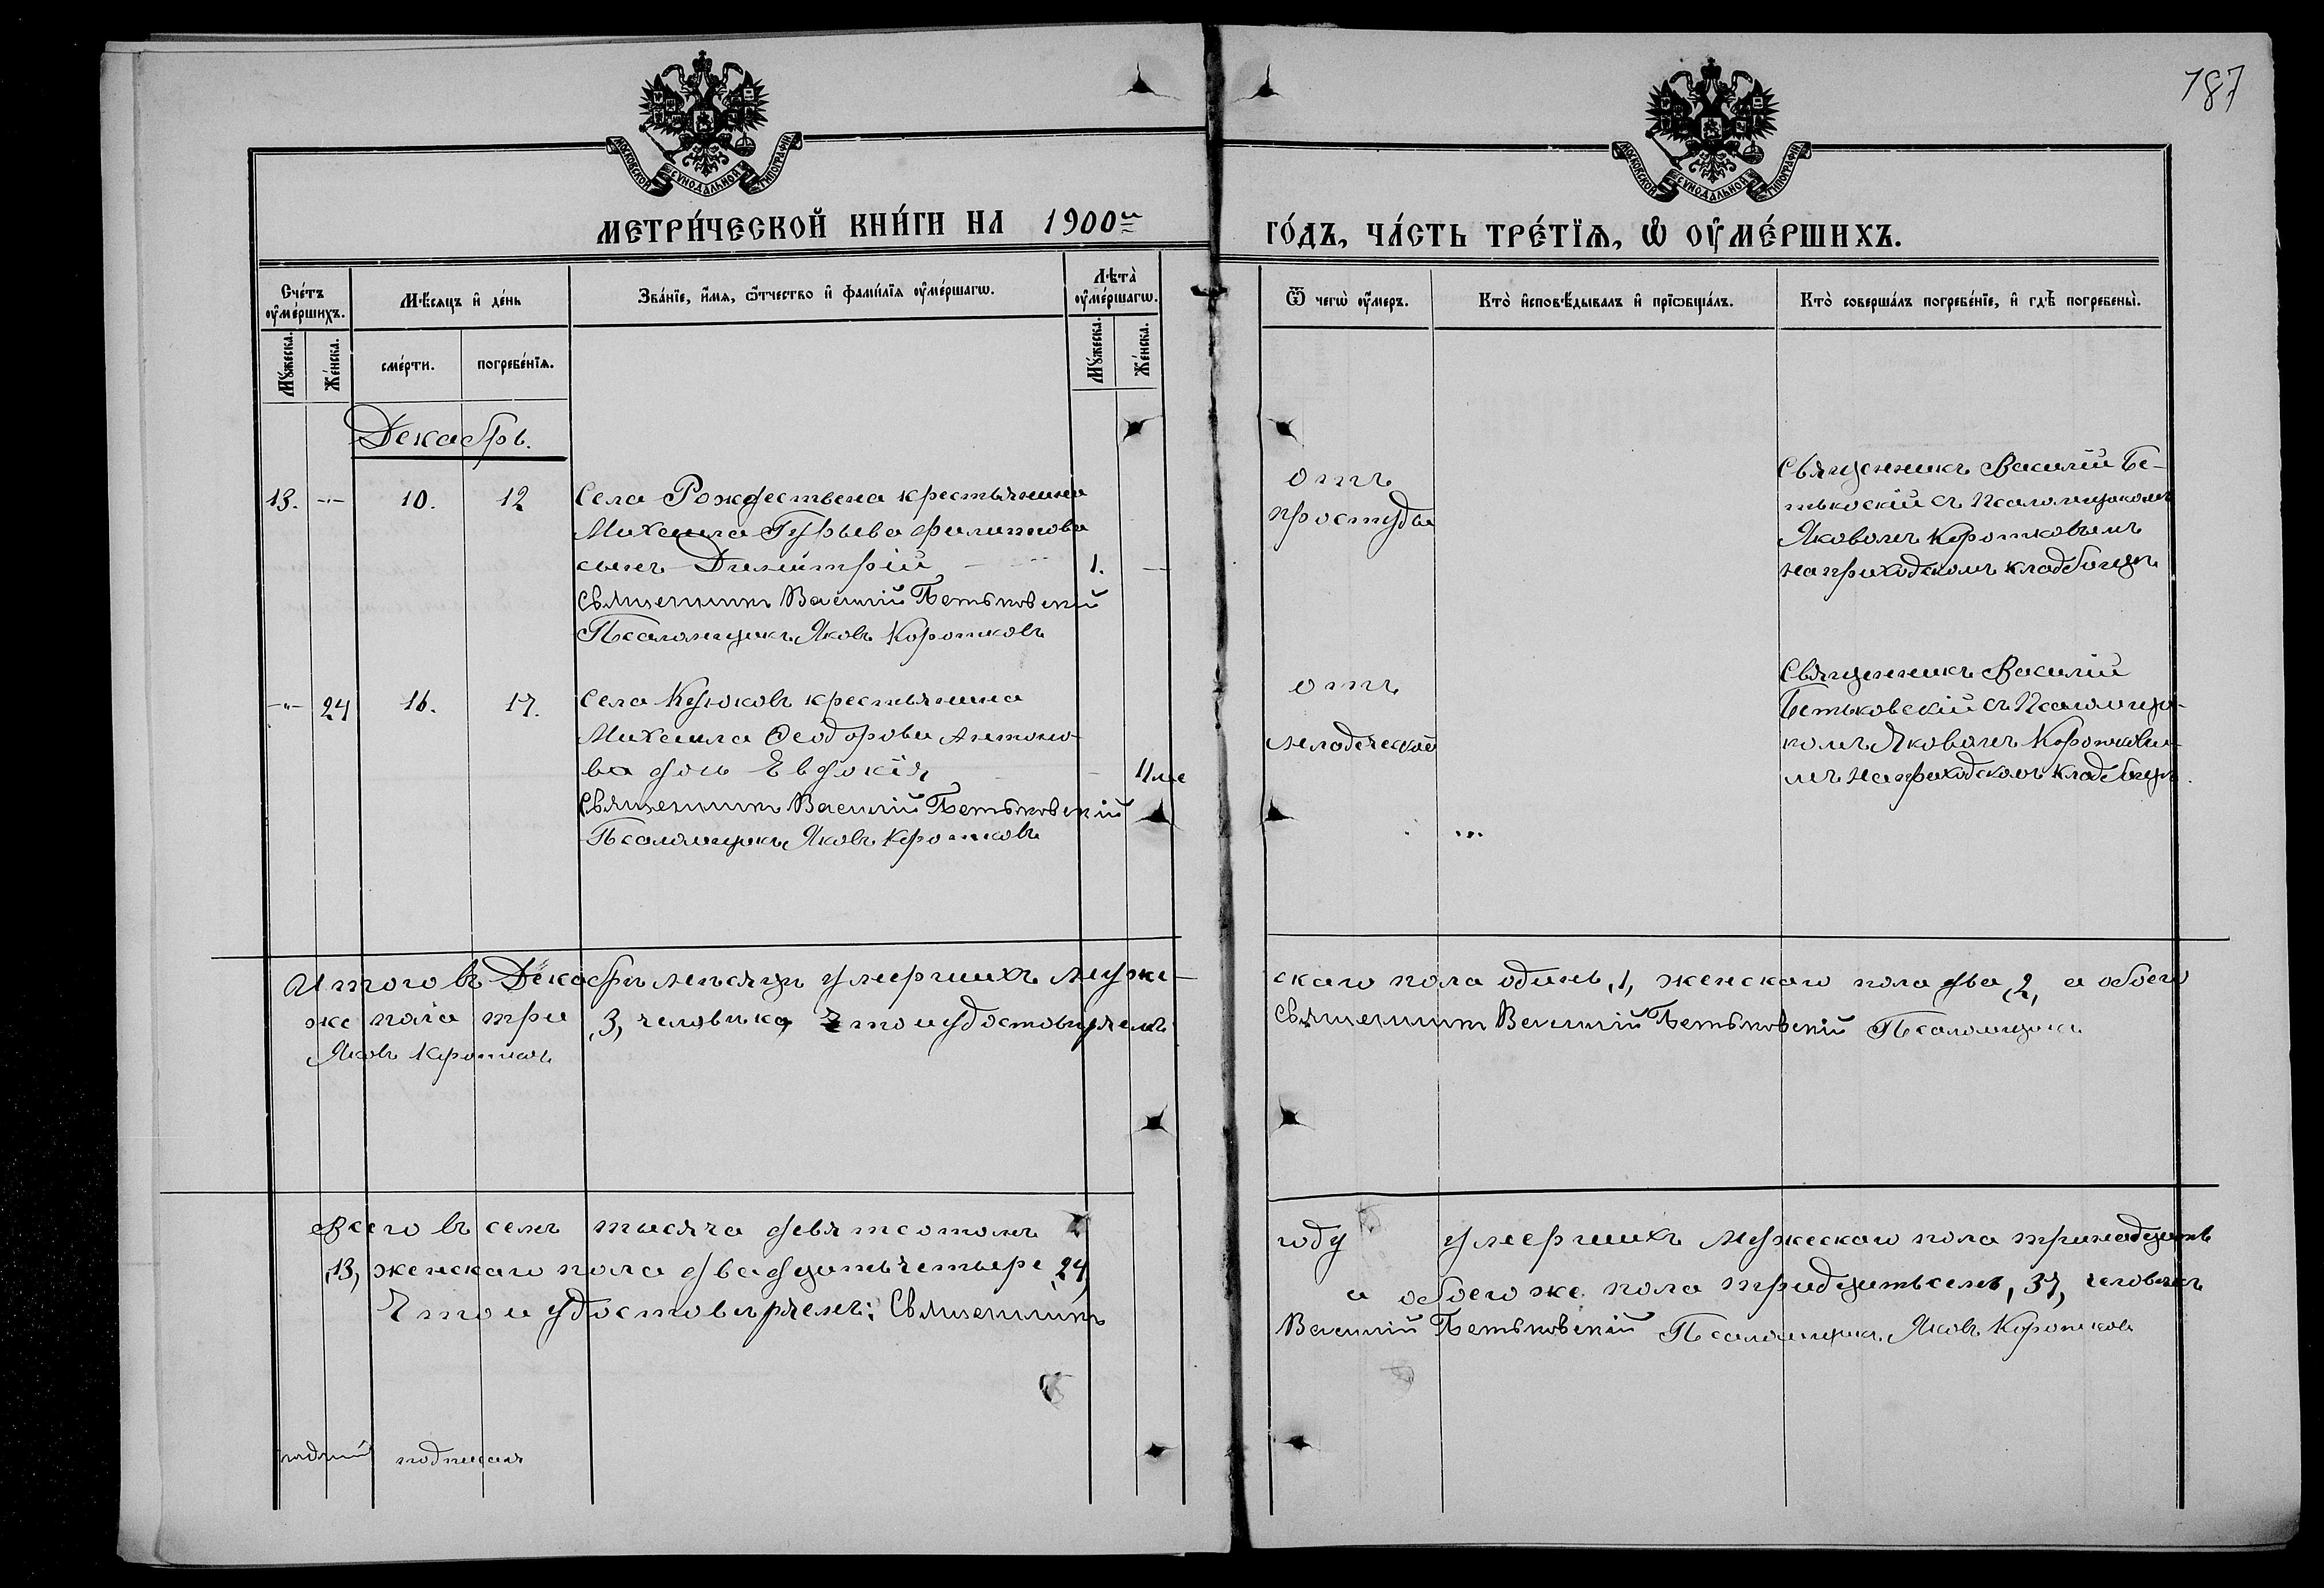 187
МОСКОВСКОЙ СУНОДАЛЬНОЙ ТИПОГРАФИИ
МОСКОВСКОЙ СУНОДАЛЬНОЙ ТИПОГРАФИИ
МЕТРИ́ЧЕСКОЙ КНИ́ГИ НА 1900й
ГО́ДЪ, ЧА́СТЬ ТРЕ́ТЇѦ, Ѡ҆ ОУ҆МЕ́РШИХЪ.
Сче́тъ оу҆ме́ршихъ.
Мꙋ́жеска.
Же́нска.
Мѣ́сяцъ и҆ де́нь
сме́рти.
погребе́нїѧ.
Зва́нїе, и҆́мѧ, ѻ҆́тчество и҆ фами́лїѧ оу҆ме́ршагѡ.
Лѣта̀ оу҆ме́ршагѡ.
Мꙋ́жеска.
Же́нска.
Ѿ чегѡ̀ оу҆́меръ.
Кто̀ и҆сповѣ́дывалъ и҆ прїѡбща́лъ.
Кто̀ соверша́лъ погребе́нїе, и҆ гдѣ̀ погребены̀.
Декабрь.
13. -"- 10. 12
Села Рождествена крестьянина
Михаила Гурьева Филиппова
сынъ Димитрій 1. —
Священникъ Василій Бетьковскій
Псаломщикъ Яковъ Коротковъ
отъ
простуды
Священникъ Василій Бе-
тьковскій съ Псаломщикомъ
Яковомъ Коротковымъ
на приходскомъ кладбищѣ
-"- 24 16. 17.
Села крестьянина
Михаила Ѳеодорова Антоно-
ва дочь Евдокія
Священникъ Василій Бетьковскій
Псаломщикъ Яковъ Коротковъ
отъ
младеческой
Священникъ Василій
Бетьковскій съ Псаломщи-
комъ Яковомъ Коротковы-
мъ на приходскомъ кладбищѣ.
Итого въ Декабрѣ мѣсяцѣ умершихъ муже-
скаго пола одинъ, 1, женскаго пола два, 2, а обоего
же пола три ,3, человѣка, Что и удостовѣряемъ
Священникъ Василій Бетьковскій Псаломщикъ
Яковъ Коротковъ
Всего въ семъ тысяча девятсотомъ
году умершихъ мужескаго пола тринадцать
,13, женскаго пола двадцать четыре ,24,
а обоего же пола тридцать семь, 37, человѣкъ
Что и удостовѣряемъ: Священникъ
Василій Бетьковскій Псаломщикъ Яковъ Коротковъ
подписалъ